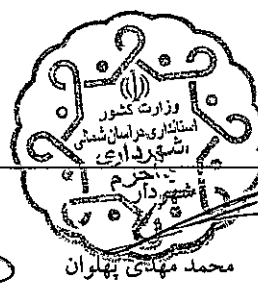 وزارت کشور
استانداری خراسان شمالی
شهرداری
شهردار
محمد مهدی پهلوان